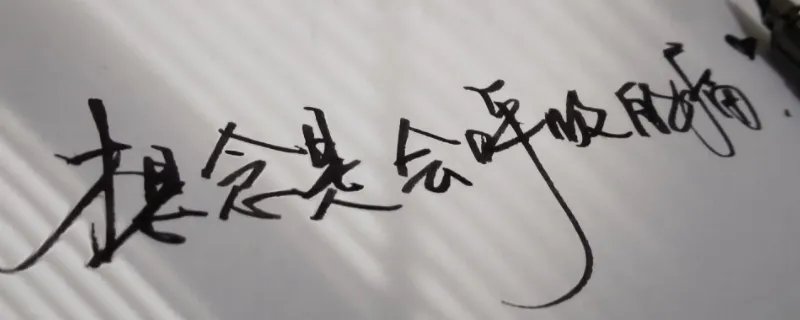 想念是会呼吸的痛.